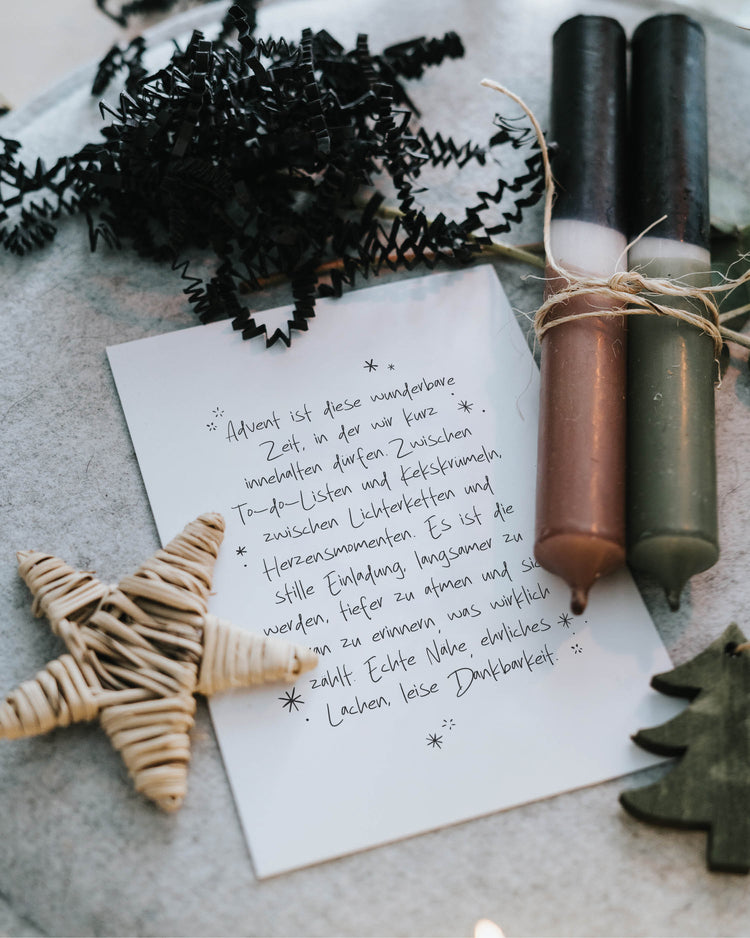 Advent ist diese wunderbare
Zeit, in der wir kurz
innehalten dürfen. Zwischen
To-do-Listen und Kekskrümeln,
zwischen Lichterketten und
Herzensmomenten. Es ist die
stille Einladung, langsamer zu
werden, tiefer zu atmen und
zu erinnern, was wirklich
zählt. Echte Nähe, ehrliches
Lachen, leise Dankbarkeit.